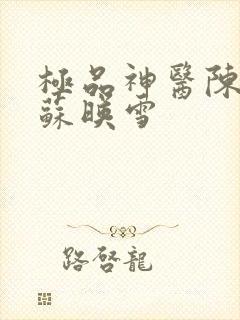 極品神醫陳
蘇暎雪
路啓龍